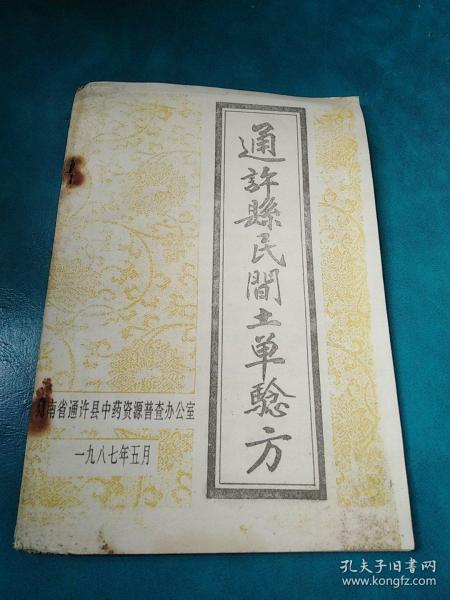 通許縣民間土单驗方
河南省通许县中药资源普查办公室
一九八七年五月
孔夫子旧书网
www.kongfz.com